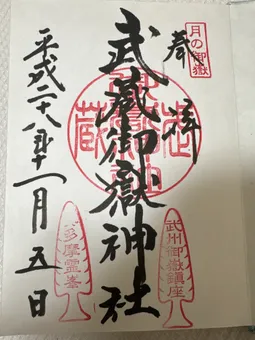 月の御嶽
奉拝
武蔵御嶽神社
武州御嶽鎮座
平成二十八年十一月五日
多摩霊峯